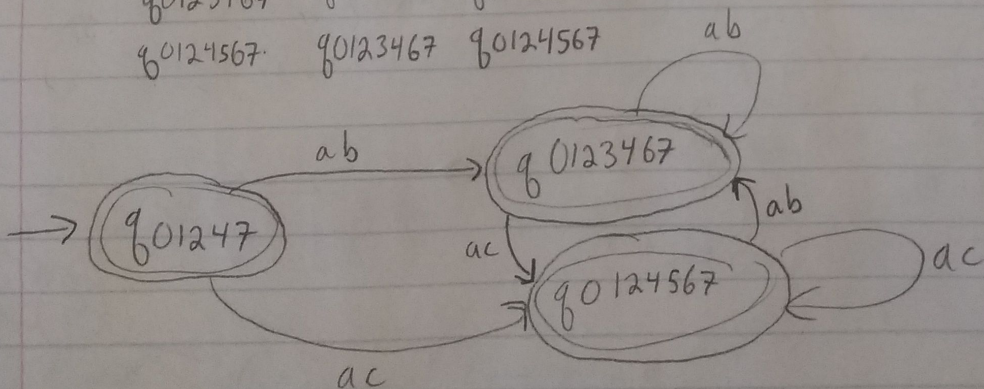 q0124567. q0123467 q0124567
ab
ab
q0123467
q01247
ab
ac
ac
q0124567
ac